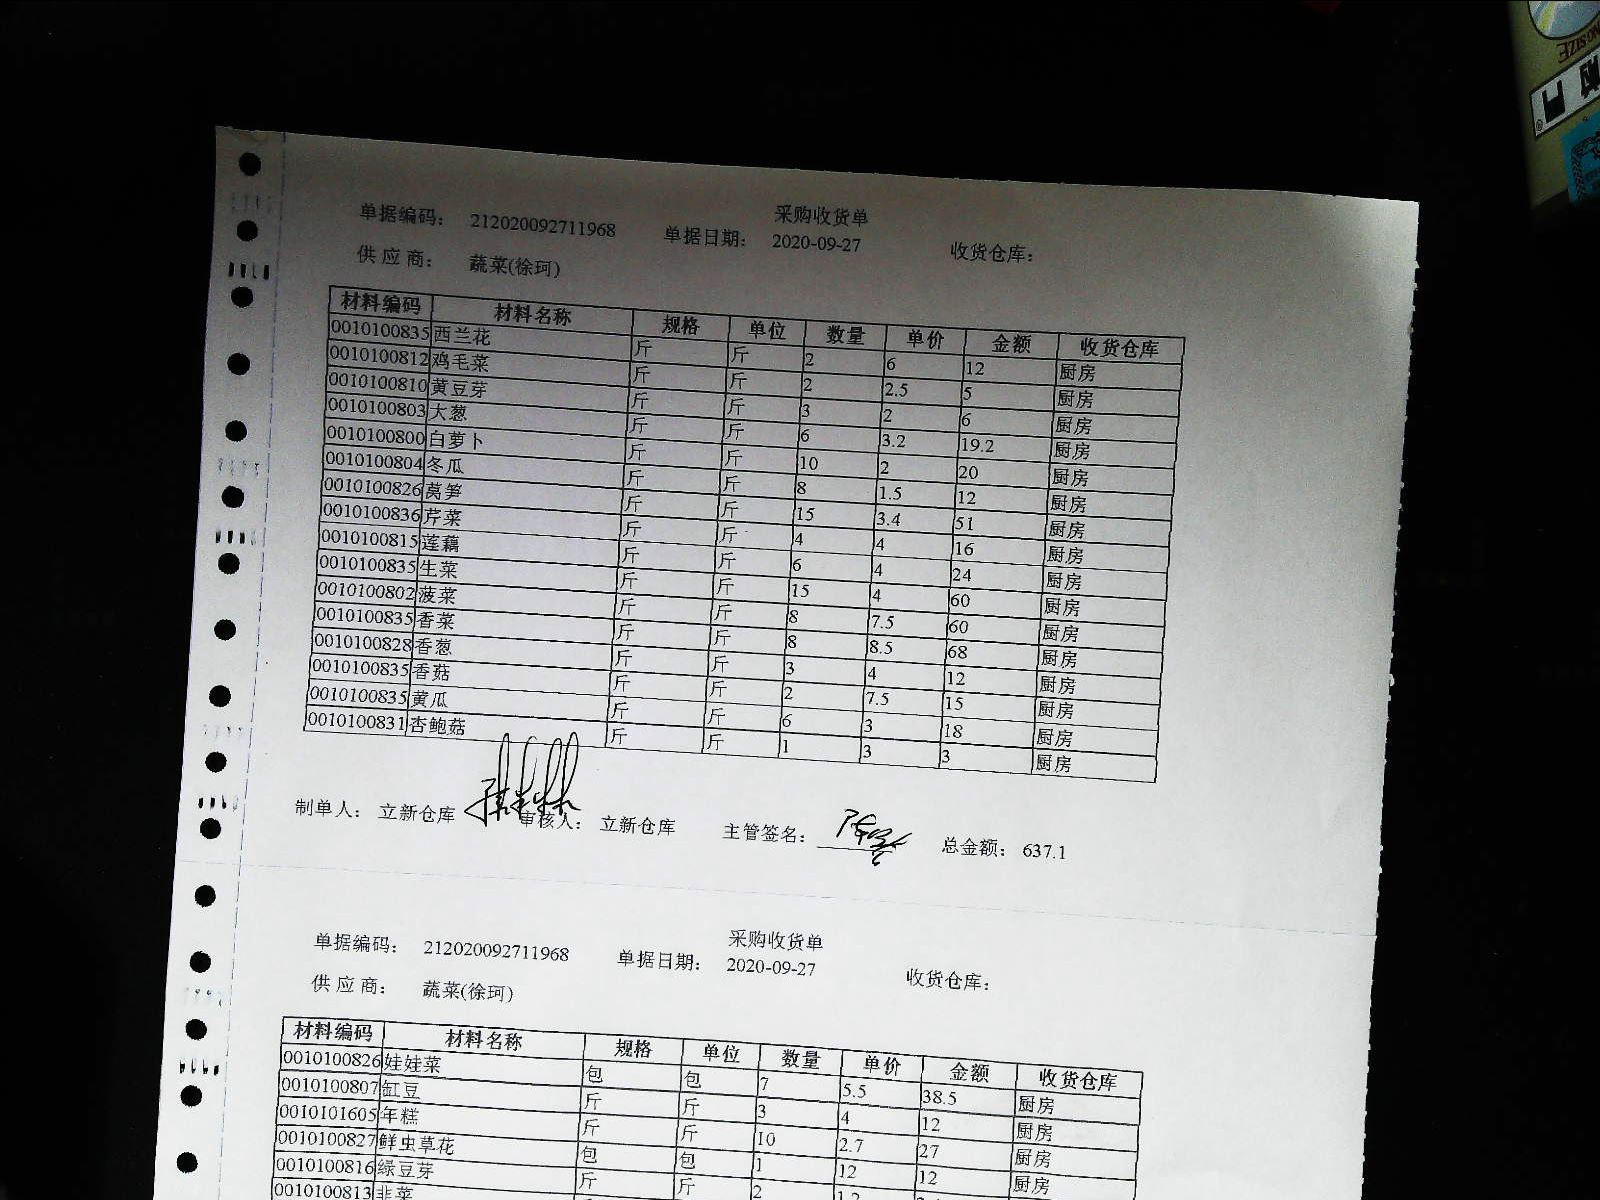 采购收货单
单据编码： 212020092711968 单据日期： 2020-09-27 收货仓库：
供 应 商： 蔬菜(徐珂)
材料编码 材料名称 规格 单位 数量 单价 金额 收货仓库
0010100835 西兰花 斤 斤 2 6 12 厨房
0010100812 鸡毛菜 斤 斤 2 2.5 5 厨房
0010100810 黄豆芽 斤 斤 3 2 6 厨房
0010100803 大葱 斤 斤 6 3.2 19.2 厨房
0010100800 白萝卜 斤 斤 10 2 20 厨房
0010100804 冬瓜 斤 斤 8 1.5 12 厨房
0010100826 莴笋 斤 斤 15 3.4 51 厨房
0010100836 芹菜 斤 斤 4 4 16 厨房
0010100815 莲藕 斤 斤 6 4 24 厨房
0010100835 生菜 斤 斤 15 4 60 厨房
0010100802 菠菜 斤 斤 8 7.5 60 厨房
0010100835 香菜 斤 斤 8 8.5 68 厨房
0010100828 香葱 斤 斤 3 4 12 厨房
0010100835 香菇 斤 斤 2 7.5 15 厨房
0010100835 黄瓜 斤 斤 6 3 18 厨房
0010100831 杏鲍菇 斤 斤 1 3 3 厨房
制单人： 立新仓库 审核人： 立新仓库 主管签名： 总金额： 637.1
采购收货单
单据编码： 212020092711968 单据日期： 2020-09-27 收货仓库：
供 应 商： 蔬菜(徐珂)
材料编码 材料名称 规格 单位 数量 单价 金额 收货仓库
0010100826 娃娃菜 包 包 7 5.5 38.5 厨房
0010100807 缸豆 斤 斤 3 4 12 厨房
0010101605 年糕 斤 斤 10 2.7 27 厨房
0010100827 鲜虫草花 包 包 1 12 12 厨房
0010100816 绿豆芽 斤 斤 2 1.2
0010100813 韭菜